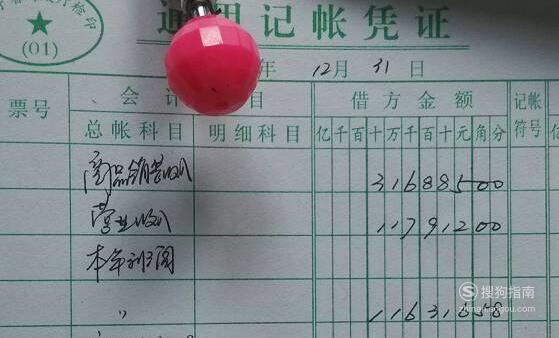 检印
(01)
通 记帐凭证
年 12月 31日
票号 会计 目 借方金额 记帐符号
总帐科目 明细科目 亿千百十万千百十元角分
商品销售收入 31688500
营业收入 11791200
本年利润
〃
搜狗指南